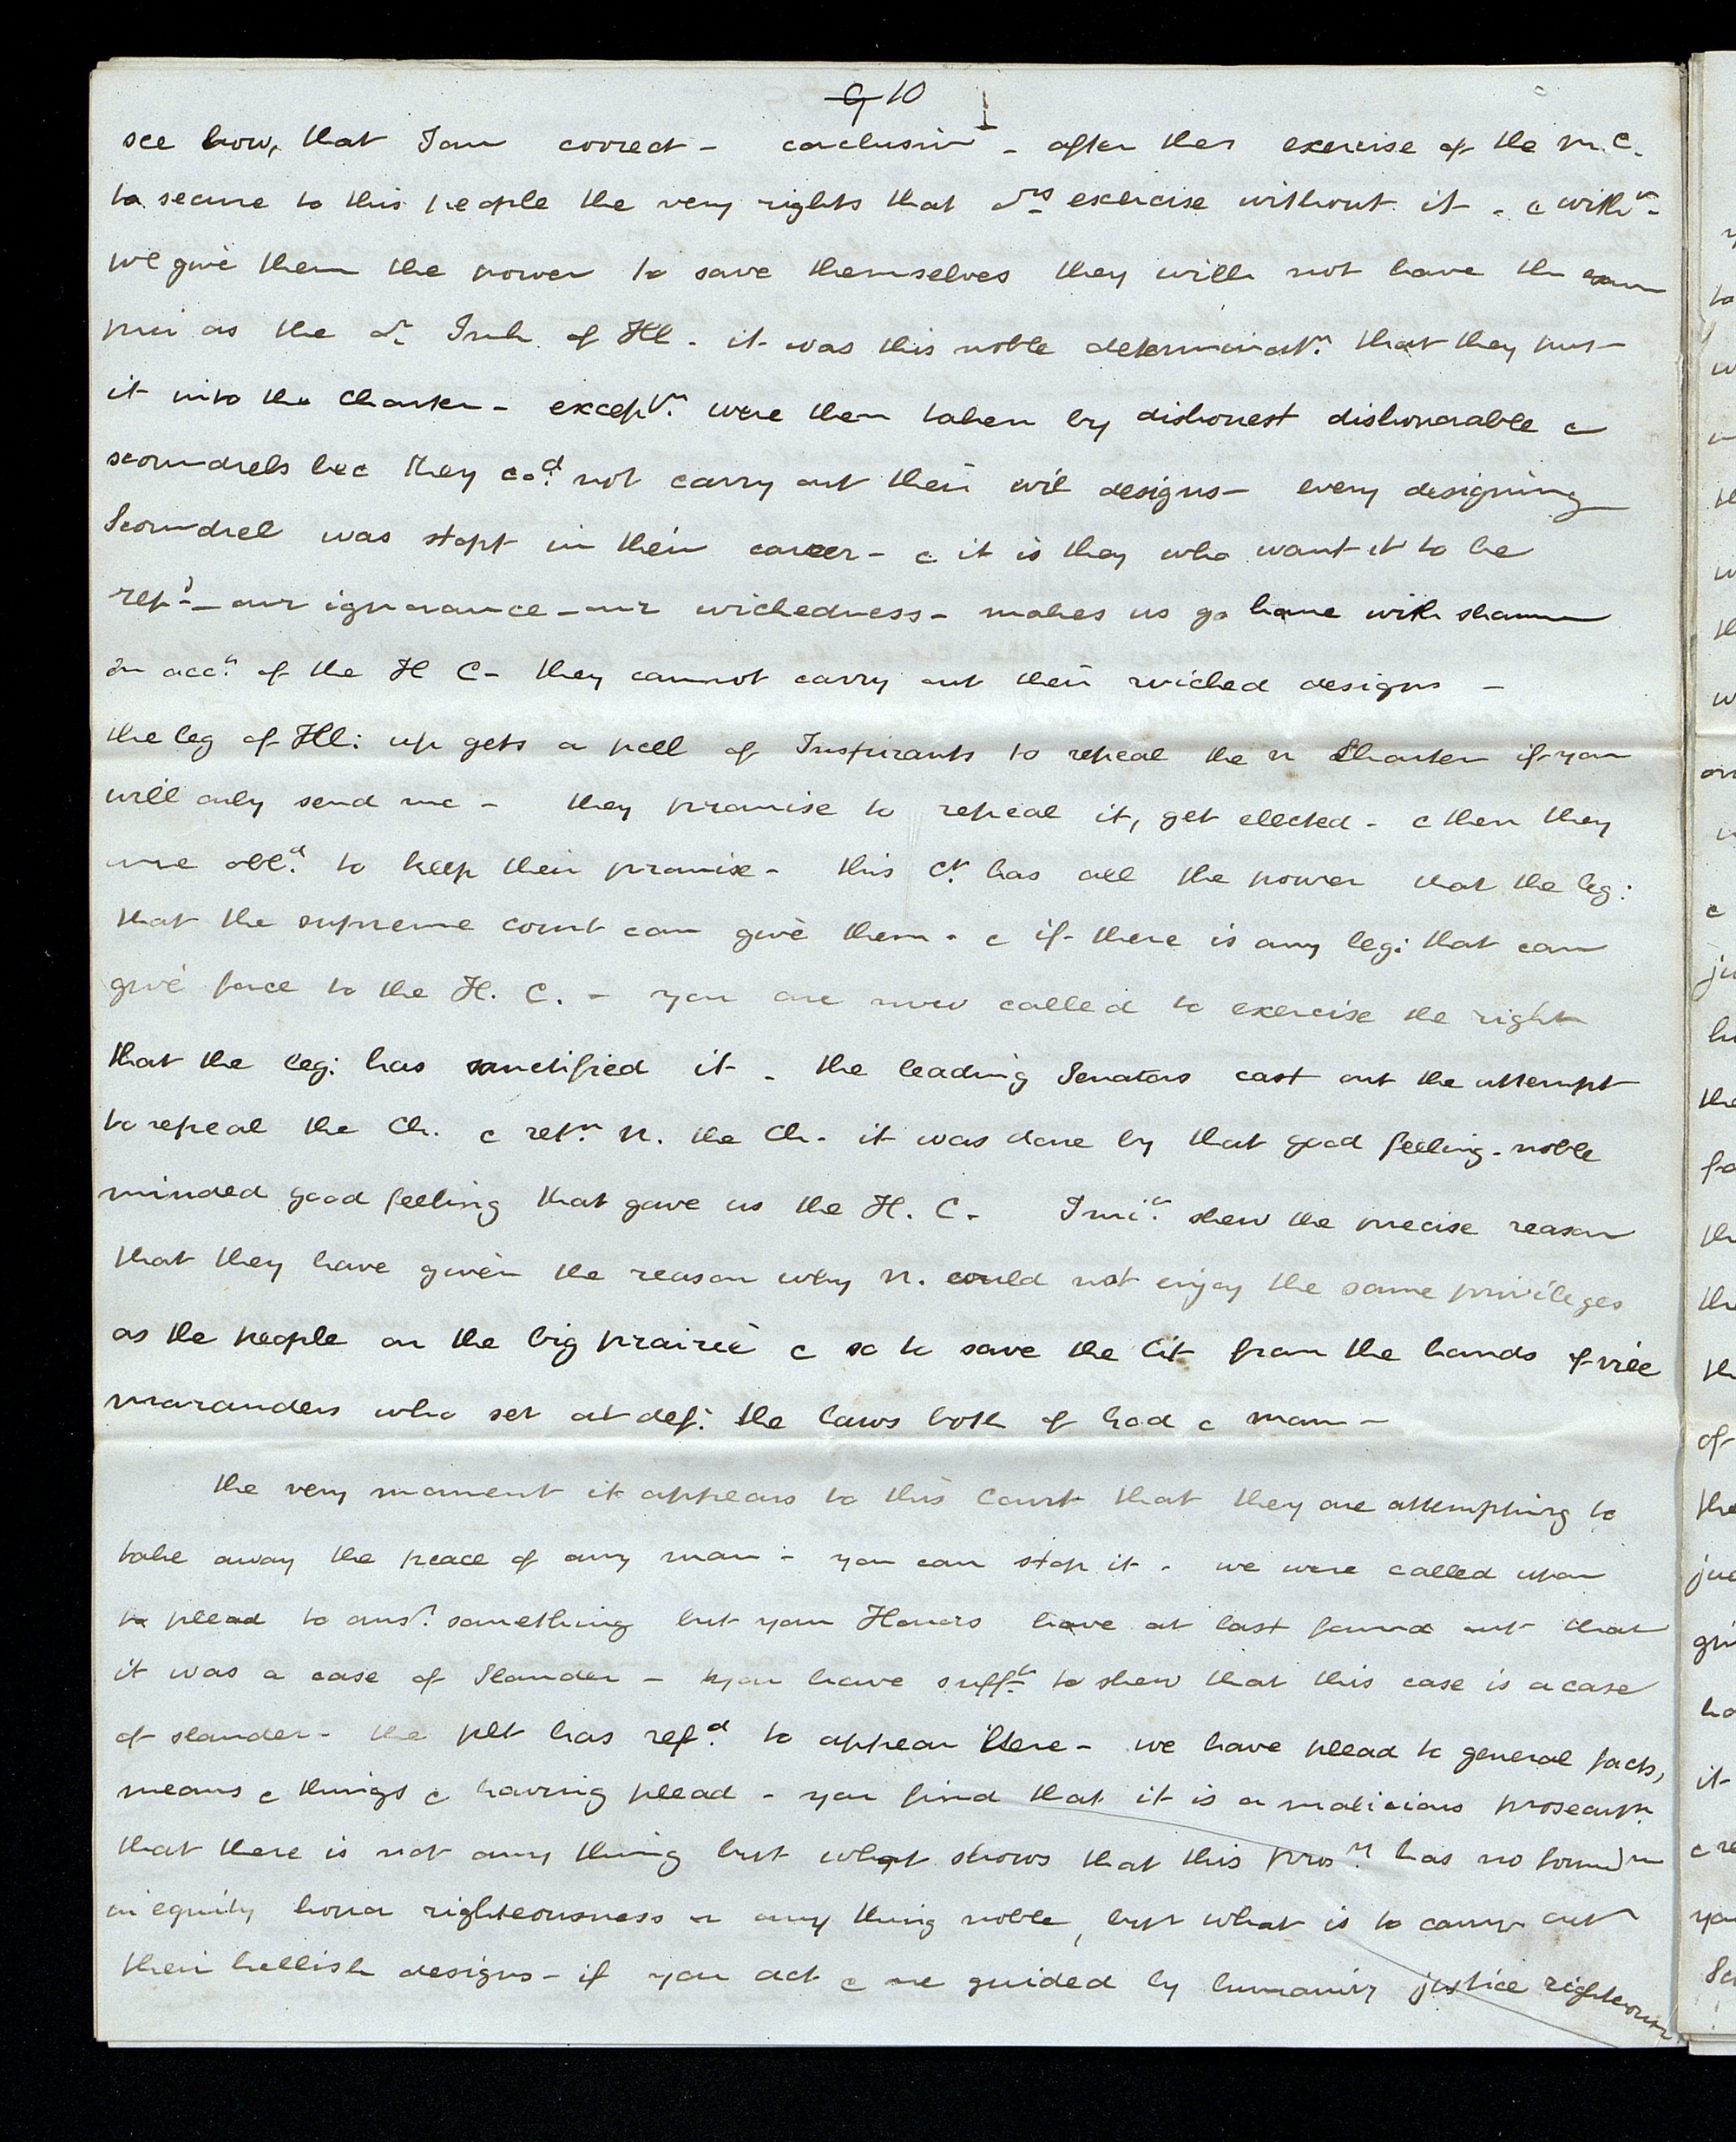 9 10
see how, that I am correct - conclusive - after their exercise of the M. C.
to secure to this people the very rights that ors exercise without it - & with
we give them the power to save themselves they will not have the same
pri as the or Inh of Ill - it was this noble determinatn. that they put
it into the Charter - exceptn. were then taken by dishonest dishonorable &
scoundrels bec they cod. not carry out their evil designs - every designing
Scoundrel was stopt in their career - & it is they who want it to be
repd - our ignorance - our wickedness - makes us go home with shame
on acct. of the H C - they cannot carry out their wicked designs -
the leg of Ill: up gets a pcll of to repeal the N Charter if you
will only send me - they promise to repeal it, get elected - & then they
are obld. to keep their promise - this Ct. has all the power that the leg:
that the supreme court can give them - & if there is any leg: that can
give force to the H. C. - you are now called to exercise the right
that the leg: has sanctified it - the leading Senators cast out the attempt
to repeal the Ch. & retn N. the Ch. it was done by that good feeling - noble
minded good feeling that gave us the H. C. - I mit. shew the precise reason
that they have given the reason why N. could not enjoy the same privileges
as the people on the big prairie & so to save the Cit from the hands of vile
marauders who set at def: the laws both of God & man -
the very moment it appears to this Court that they are attempting to
take away the peace of any man - you can stop it - we were called upon
to plead to ansr. something but your Honors have at last found out that
it was a case of Slander - you have sufft to shew that this case is a case
of slander - the plt has refd. to appear here - we have plead to general facts,
means & things & having plead - you find that it is a malicious prosecutn.
that there is not any thing but what shows that this prosn. has no foundn
in equity honor righteousness or any thing noble, but what is to carry out
their hellish designs - if you act & are guided by humanity justice righteousn